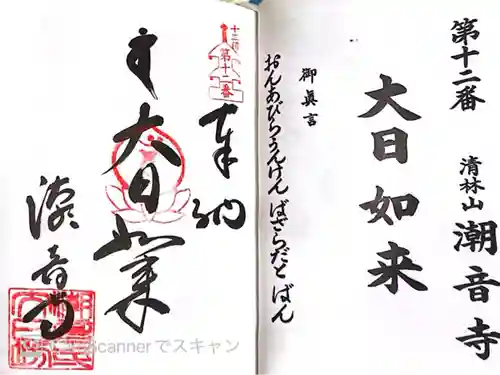 第十二番
清林山 潮音寺
大日如来
御真言
おんあびらうんけん ばざらだと ばん
十三佛
第十二番
奉納
大日如来
潮音寺
Scannerでスキャン